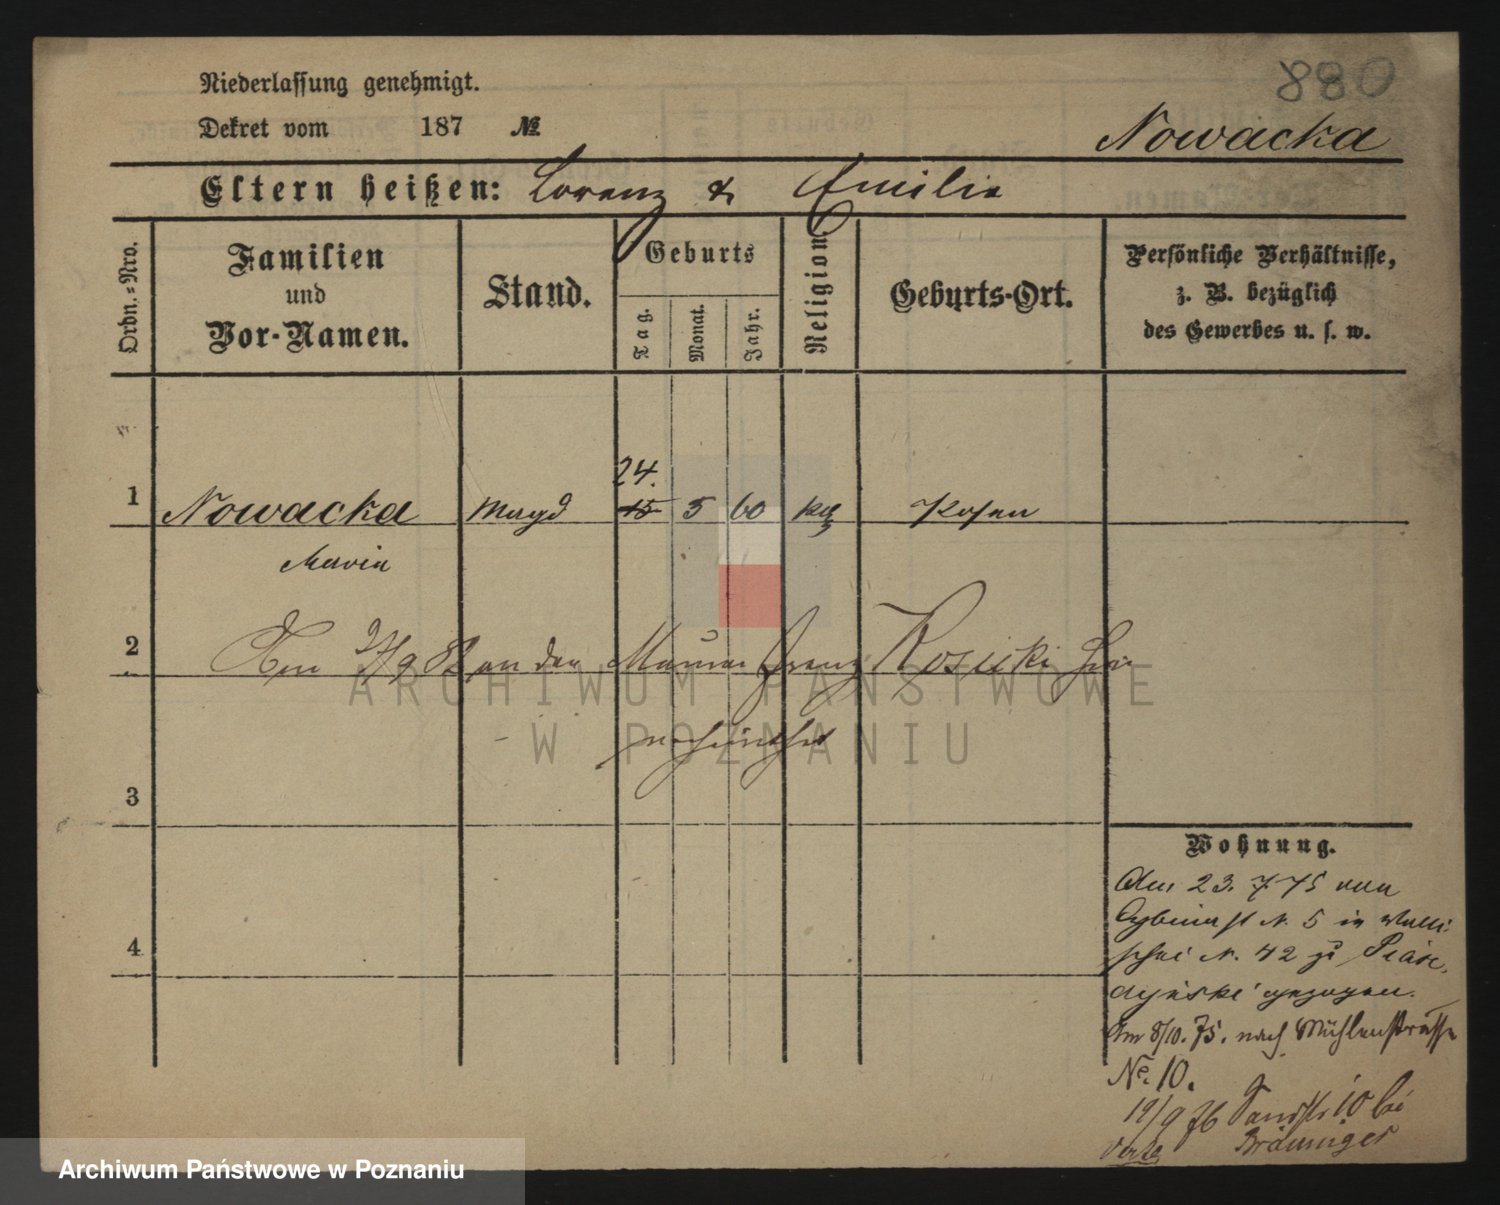 880
Niederlassung genehmigt.
Dekret vom 187 №
Nowacka
Eltern heißen: Lorenz & Emilie
Ordn.=Nro.
Familien
und
Vor-Namen.
Stand.
Geburts
Tag.
Monat.
Jahr.
Religion
Geburts-Ort.
Persönliche Verhältnisse,
z. B. bezüglich
des Gewerbes u. s. w.
24.
1 Nowacka Magd 15 5 60 kath Posen
Maria
2 Am 9/9 82 an den Maurer Franz Kosicki hier
verheirathet
3
4
Wohnung.
Am 23. 7. 75 von
N. 5 in Walli-
schei N. 42 zu
gezogen.
Am 8/10. 75. nach Mühlenstrasse
No. 10.
19/9 76 Sandstr 10 bei
Verte Bräuniger
ARCHIWUM PAŃSTWOWE
W POZNANIU
Archiwum Państwowe w Poznaniu